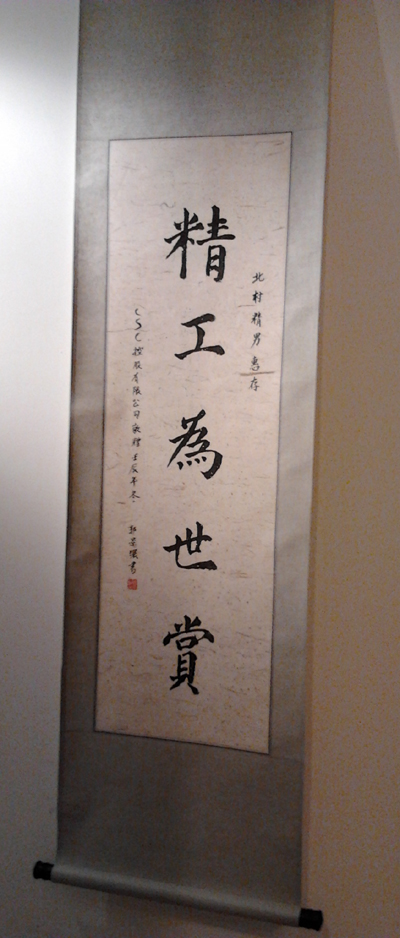 北村精男惠存
精工為世賞
CSC控股有限公司敬贈壬辰年冬
書